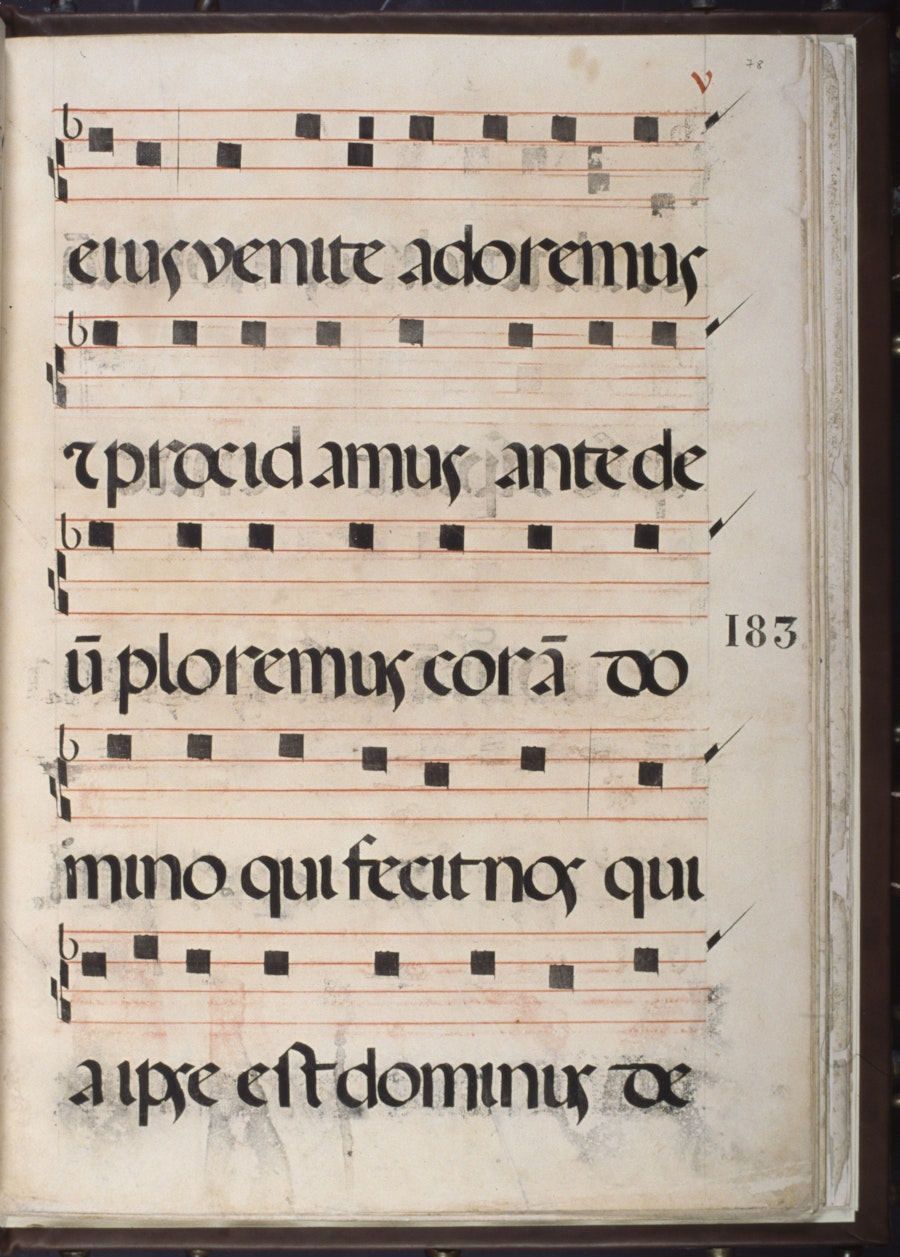 v
78
eius venite adoremus
⁊ procid amus ante de
ū ploremus corā do
183
mino qui fecit nos qui
a ipse est dominus de